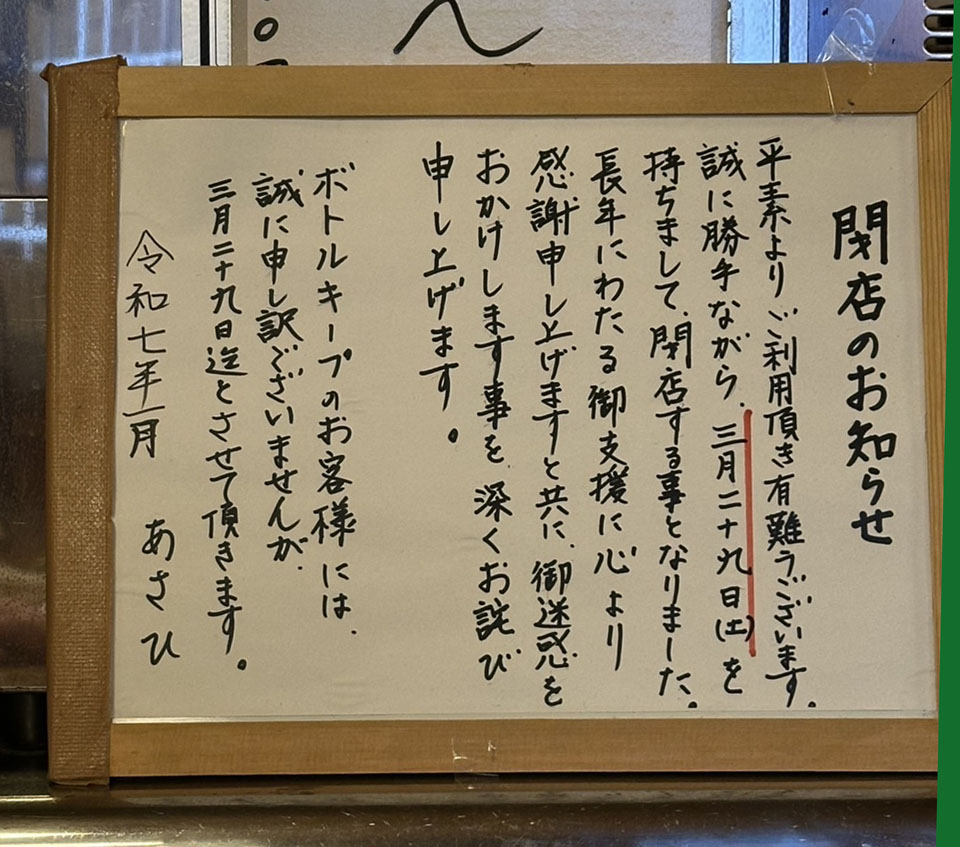 閉店のお知らせ
平素よりご利用頂き有難うございます。
誠に勝手ながら、三月二十九日(土)を
持ちまして、閉店する事となりました。
長年にわたる御支援に心より
感謝申し上げますと共に、御迷惑を
おかけします事を、深くお詫び
申し上げます。
ボトルキープのお客様には、
誠に申し訳ございませんが、
三月二十九日迄とさせて頂きます。
令和七年一月 あさひ